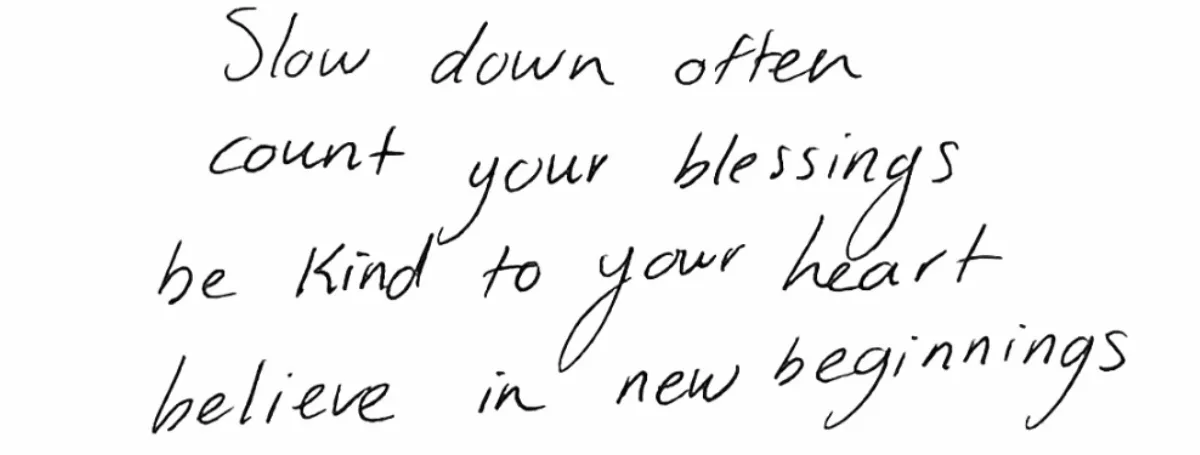 Slow down often
count your blessings
be Kind to your heart
believe in new beginnings